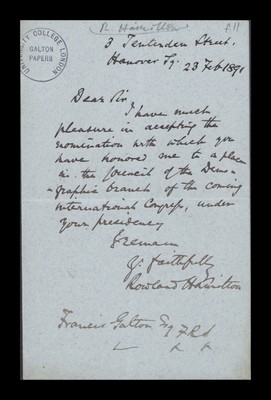 R. Hamilton
f.11
UNIVERSITY COLLEGE LONDON
GALTON
PAPERS
3 Tenterden Street.
Hanover Sq. 23 Feb 1891
Dear Sir
I have much
pleasure in accepting the
nomination with which you
have honored me to a place
in the Council of the Demo-
-graphic branch of the coming
International Congress, under
your presidency
I remain
Yrs faithfully
Rowland Hamilton
Francis Galton Esq F.R.S